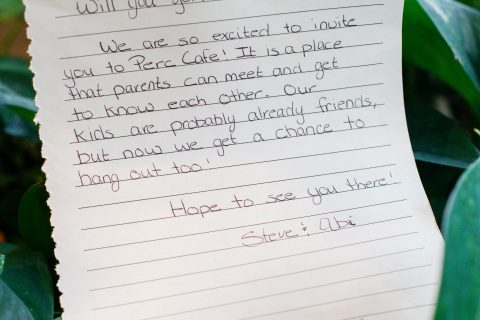 Will you
We are so excited to invite
you to Perc Cafe! It is a place
that parents can meet and get
to know each other. Our
kids are probably already friends,
but now we get a chance to
hang out too!
Hope to see you there!
Steve & Abi